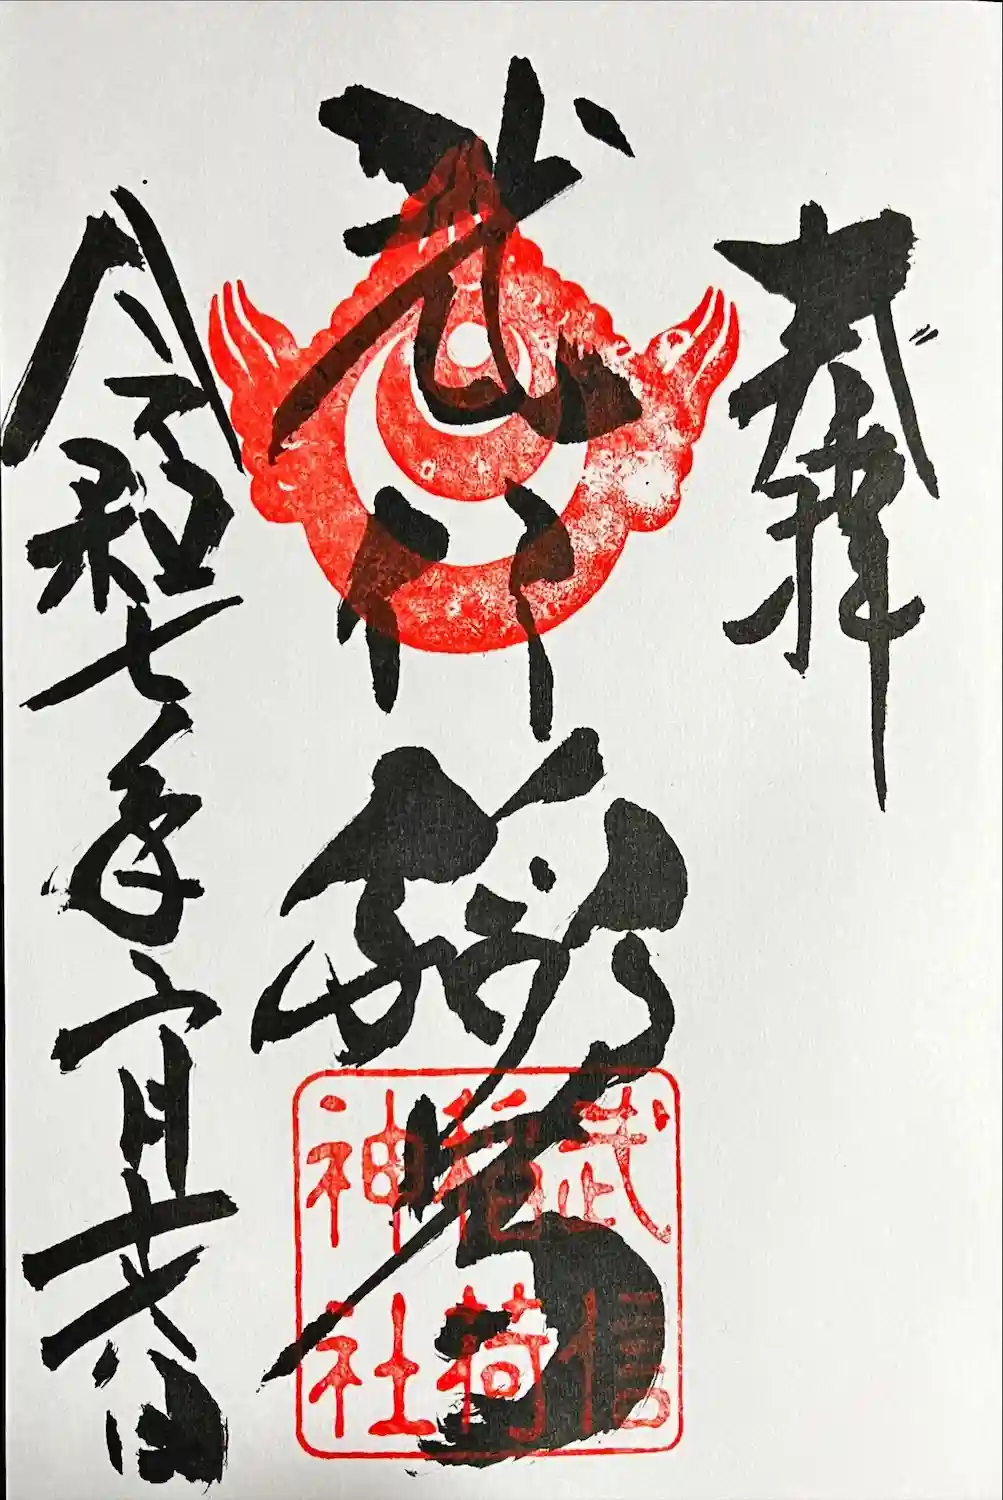 奉拝
武信稲荷
武信
稲荷
神社
令和七年六月日